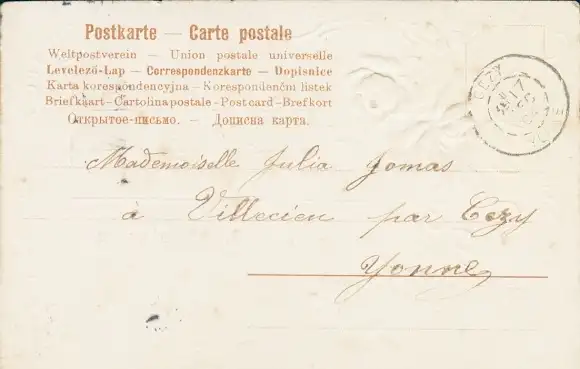 Postkarte — Carte postale
Weltpostverein — Union postale universelle
Levelező-Lap — Correspondenzkarte — Dopisnice
Karta korespondencyjna — Korespondenční listek
Briefkaart — Cartolina postale — Post card — Brefkort
Открытое-письмо. — Дописна карта.
CEZY
Mademoiselle Julia Jomas
à Villecien par Cezy
Yonne